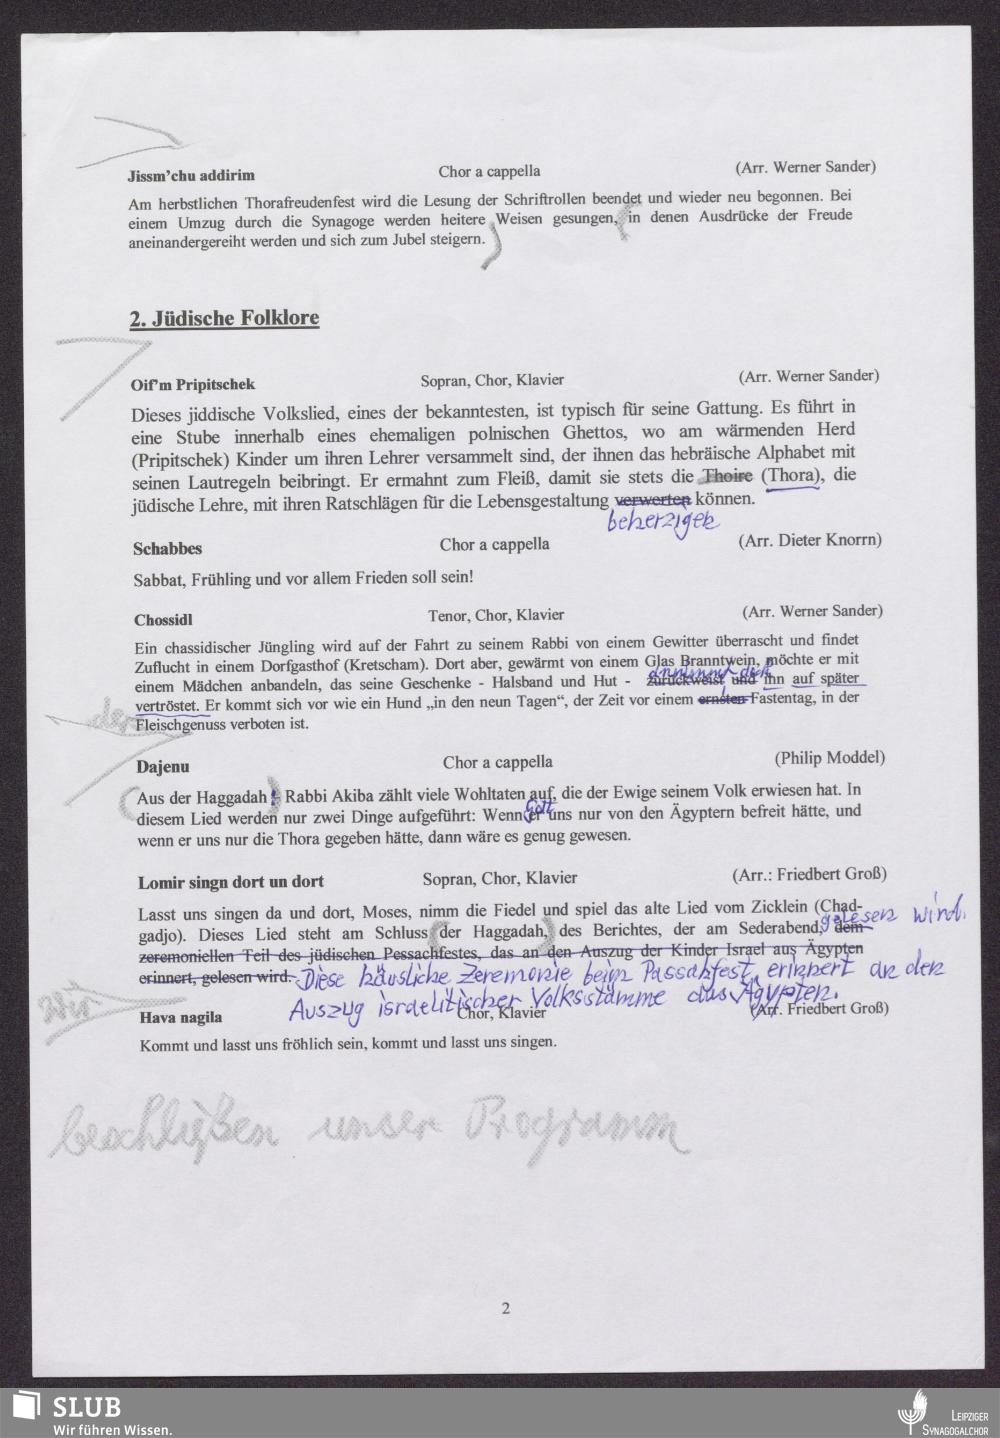 Jissm'chu addirim Chor a cappella (Arr. Werner Sander)
Am herbstlichen Thorafreudenfest wird die Lesung der Schriftrollen beendet und wieder neu begonnen. Bei
einem Umzug durch die Synagoge werden heitere Weisen gesungen, in denen Ausdrücke der Freude
aneinandergereiht werden und sich zum Jubel steigern.
2. Jüdische Folklore
Oif'm Pripitschek Sopran, Chor, Klavier (Arr. Werner Sander)
Dieses jiddische Volkslied, eines der bekanntesten, ist typisch für seine Gattung. Es führt in
eine Stube innerhalb eines ehemaligen polnischen Ghettos, wo am wärmenden Herd
(Pripitschek) Kinder um ihren Lehrer versammelt sind, der ihnen das hebräische Alphabet mit
seinen Lautregeln beibringt. Er ermahnt zum Fleiß, damit sie stets die Thoire (Thora), die
jüdische Lehre, mit ihren Ratschlägen für die Lebensgestaltung verwerten können.
beherzigen
Schabbes Chor a cappella (Arr. Dieter Knorrn)
Sabbat, Frühling und vor allem Frieden soll sein!
Chossidl Tenor, Chor, Klavier (Arr. Werner Sander)
Ein chassidischer Jüngling wird auf der Fahrt zu seinem Rabbi von einem Gewitter überrascht und findet
Zuflucht in einem Dorfgasthof (Kretscham). Dort aber, gewärmt von einem Glas Branntwein, möchte er mit
einem Mädchen anbandeln, das seine Geschenke - Halsband und Hut - zurückweist und ihn auf später
vertröstet. Er kommt sich vor wie ein Hund „in den neun Tagen“, der Zeit vor einem ernsten Fastentag, in der
Fleischgenuss verboten ist.
Dajenu Chor a cappella (Philip Moddel)
Aus der Haggadah: Rabbi Akiba zählt viele Wohltaten auf, die der Ewige seinem Volk erwiesen hat. In
Gott
diesem Lied werden nur zwei Dinge aufgeführt: Wenn er uns nur von den Ägyptern befreit hätte, und
wenn er uns nur die Thora gegeben hätte, dann wäre es genug gewesen.
Lomir singn dort un dort Sopran, Chor, Klavier (Arr.: Friedbert Groß)
Lasst uns singen da und dort, Moses, nimm die Fiedel und spiel das alte Lied vom Zicklein (Chad-
gelesen wird.
gadjo). Dieses Lied steht am Schluss der Haggadah, des Berichtes, der am Sederabend, dem
zeremoniellen Teil des jüdischen Pessachfestes, das an den Auszug der Kinder Israel aus Ägypten
erinnert, gelesen wird. Diese häusliche Zeremonie beim Passahfest erinnert an den
Auszug israelitischer Volksstämme aus Ägypten.
wir
Hava nagila Chor, Klavier (Arr. Friedbert Groß)
Kommt und lasst uns fröhlich sein, kommt und lasst uns singen.
beschließen unser Programm
2
SLUB
Wir führen Wissen.
LEIPZIGER
SYNAGOGALCHOR